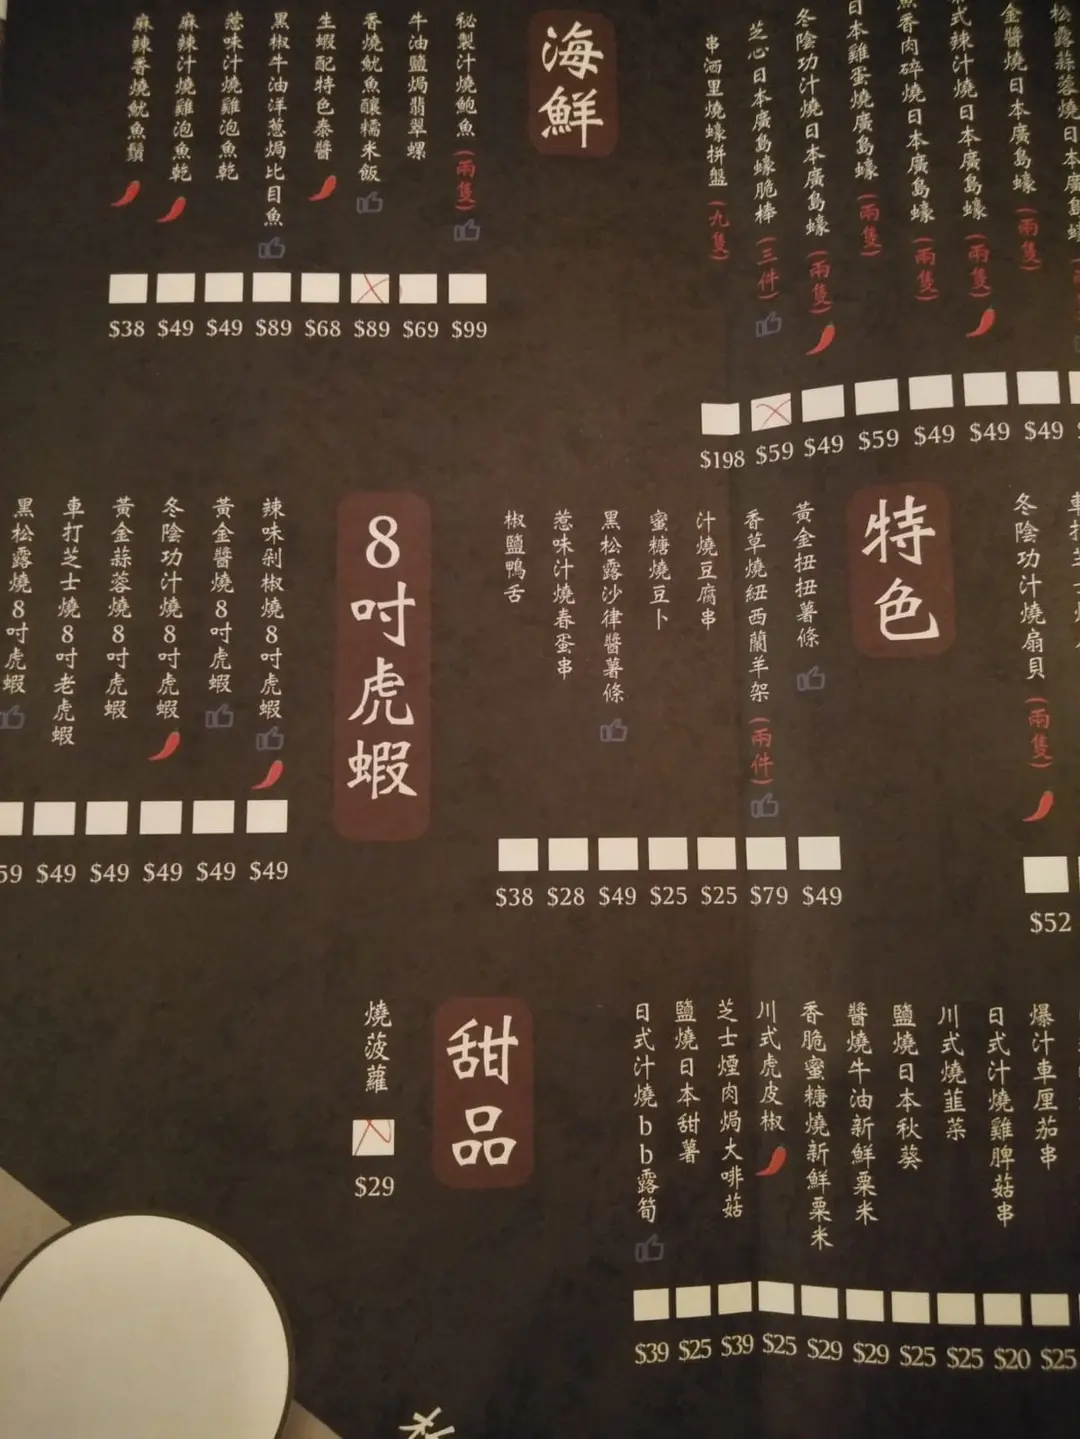 松露蒜蓉燒日本廣島蠔
金醬燒日本廣島蠔(兩隻)
$49
式辣汁燒日本廣島蠔(兩隻)
$49
魚香肉碎燒日本廣島蠔(兩隻)
$49
日本雞蛋燒廣島蠔(兩隻)
$59
冬陰功汁燒日本廣島蠔(兩隻)
$49
芝心日本廣島蠔脆棒(三件)
$59
串洒里燒蠔拼盤(九隻)
$198
海鮮
秘製汁燒鮑魚(兩隻)
$99
牛油鹽焗翡翠螺
$69
香燒魷魚釀糯米飯
$89
生蝦配特色泰醬
$68
黑椒牛油洋葱焗比目魚
$89
葱味汁燒雞泡魚乾
$49
麻辣汁燒雞泡魚乾
$49
麻辣香燒魷魚鬚
$38
冬陰功汁燒扇貝(兩隻)
$52
特色
黃金扭扭薯條
$49
香草燒紐西蘭羊架(兩件)
$79
汁燒豆腐串
$25
蜜糖燒豆卜
$25
黑松露沙律醬薯條
$49
葱味汁燒春蛋串
$28
椒鹽鴨舌
$38
8吋虎蝦
辣味剁椒燒8吋虎蝦
$49
黃金醬燒8吋虎蝦
$49
冬陰功汁燒8吋虎蝦
$49
黃金蒜蓉燒8吋虎蝦
$49
車打芝士燒8吋老虎蝦
$49
黑松露燒8吋虎蝦
59
爆汁車厘茄串
$25
日式汁燒雞脾菇串
$20
川式燒韮菜
$25
鹽燒日本秋葵
$25
醬燒牛油新鮮粟米
$29
香脆蜜糖燒新鮮粟米
$29
川式虎皮椒
$25
芝士煙肉焗大啡菇
$39
鹽燒日本甜薯
$25
日式汁燒bb露筍
$39
甜品
燒菠蘿
$29